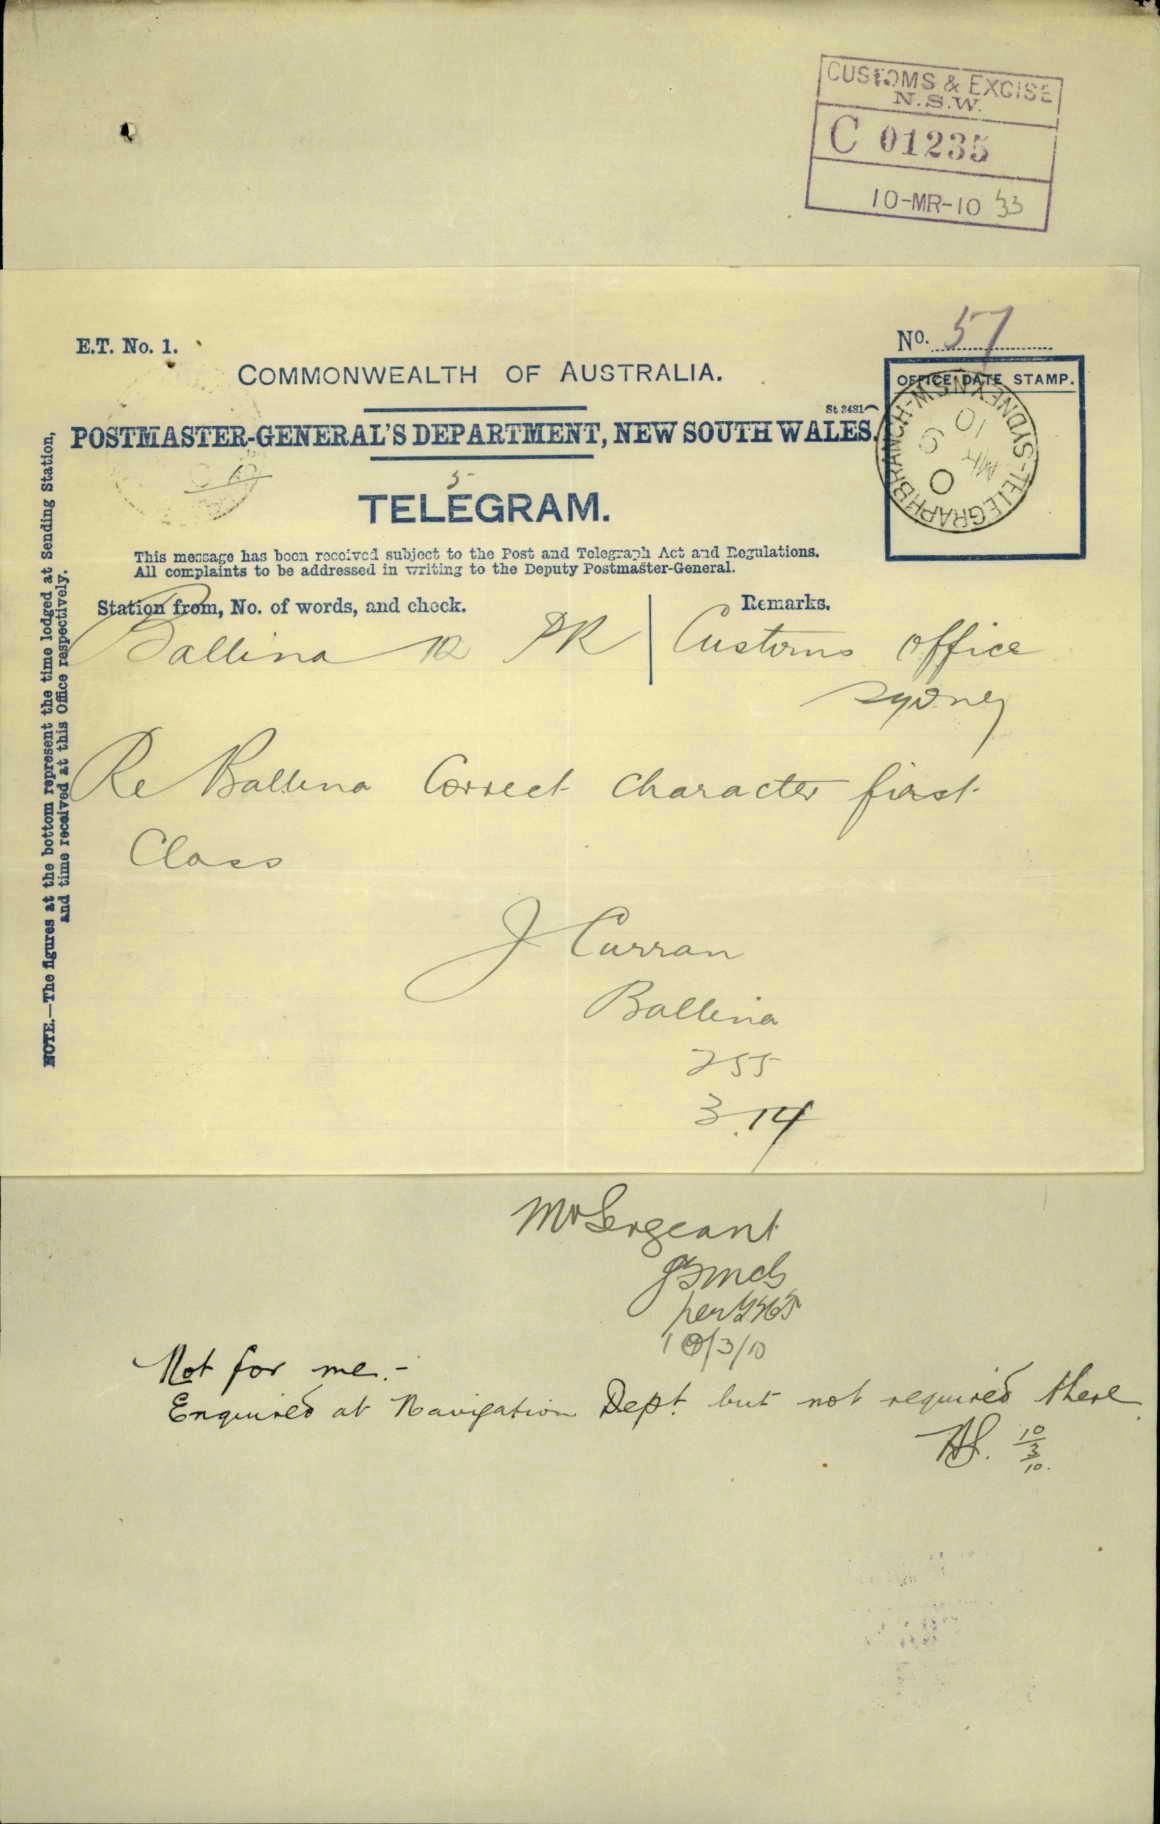 CUSTOMS & EXCISE
N.S.W.
C 01235
10-MR-10 33
E.T. No. 1.
No. 57
COMMONWEALTH OF AUSTRALIA.
OFFICE DATE STAMP.
SYDNEY N.S.W-TELEGRAPH BRANCH
9 MR 10
St 3481
POSTMASTER-GENERAL'S DEPARTMENT, NEW SOUTH WALES.
5
TELEGRAM.
This message has been received subject to the Post and Telegraph Act and Regulations.
All complaints to be addressed in writing to the Deputy Postmaster-General.
Station from, No. of words, and check.
Remarks.
Ballina 12 PR
Customs office
Sydney
Re Ballina Correct character first
Class
J Curran
Ballina
255
3.14
NOTE.—The figures at the bottom represent the time lodged at Sending Station,
and time received at this Office respectively.
Mr Sergeant
per
10/3/10
Not for me.-
Enquired at Navigation Dept. but not required there.
HS. 10/3/10.